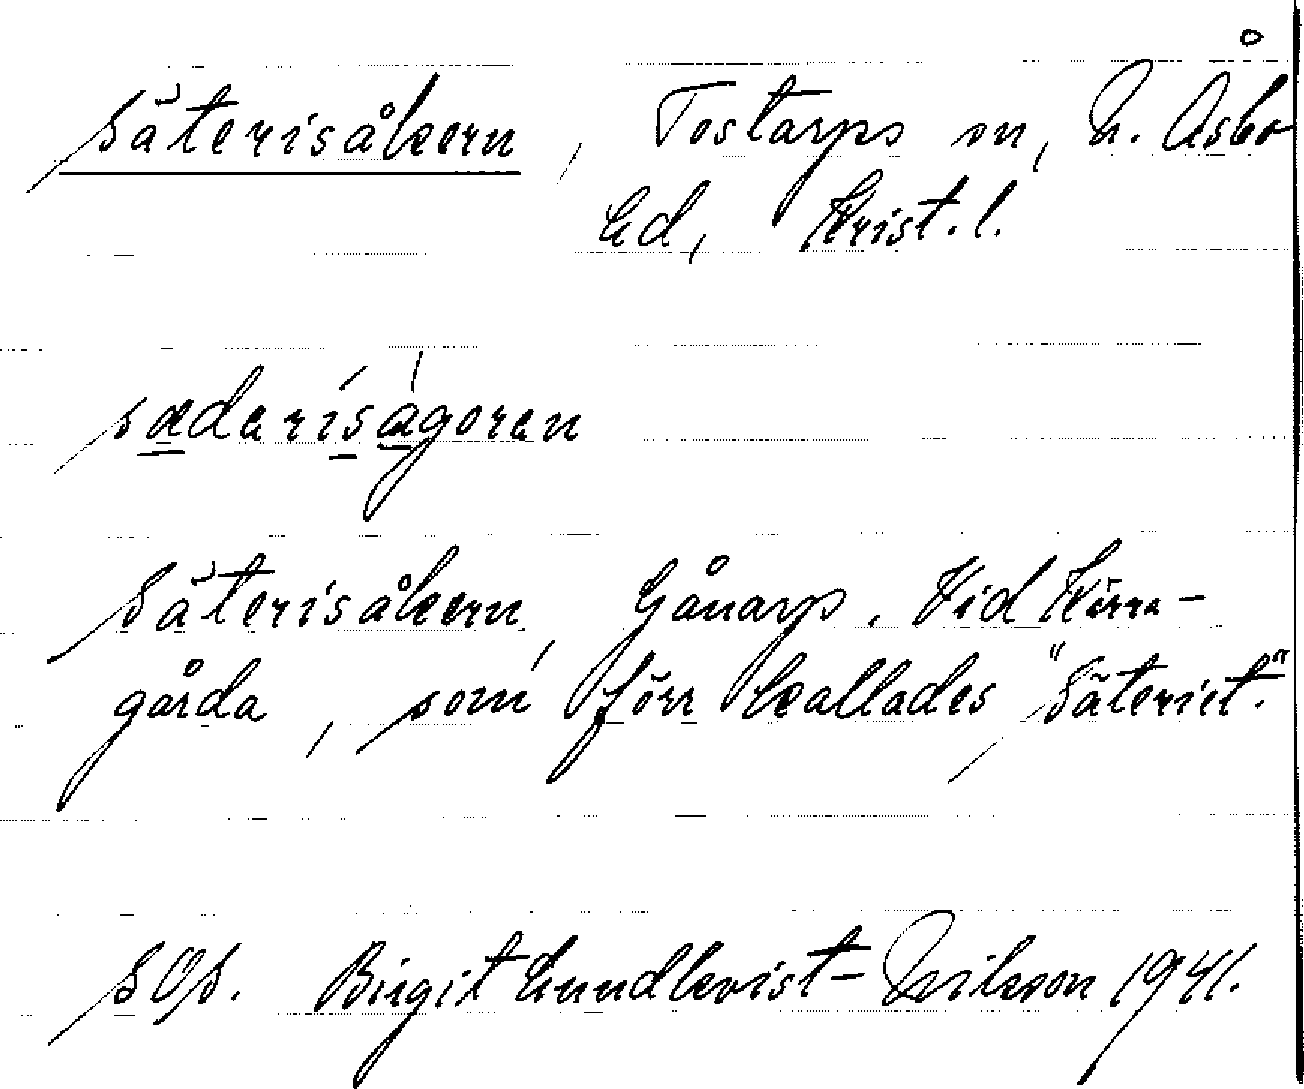 Säterisåkern, Tostarps sn, N. Åsbo
hd, Krist. l.
sædarisågoran
Säterisåkern, Gånarp. Vid Kärra-
gårda, som förr kallades "Säteriet."
SOS. Birgit Lundkvist-Nilsson 1941.